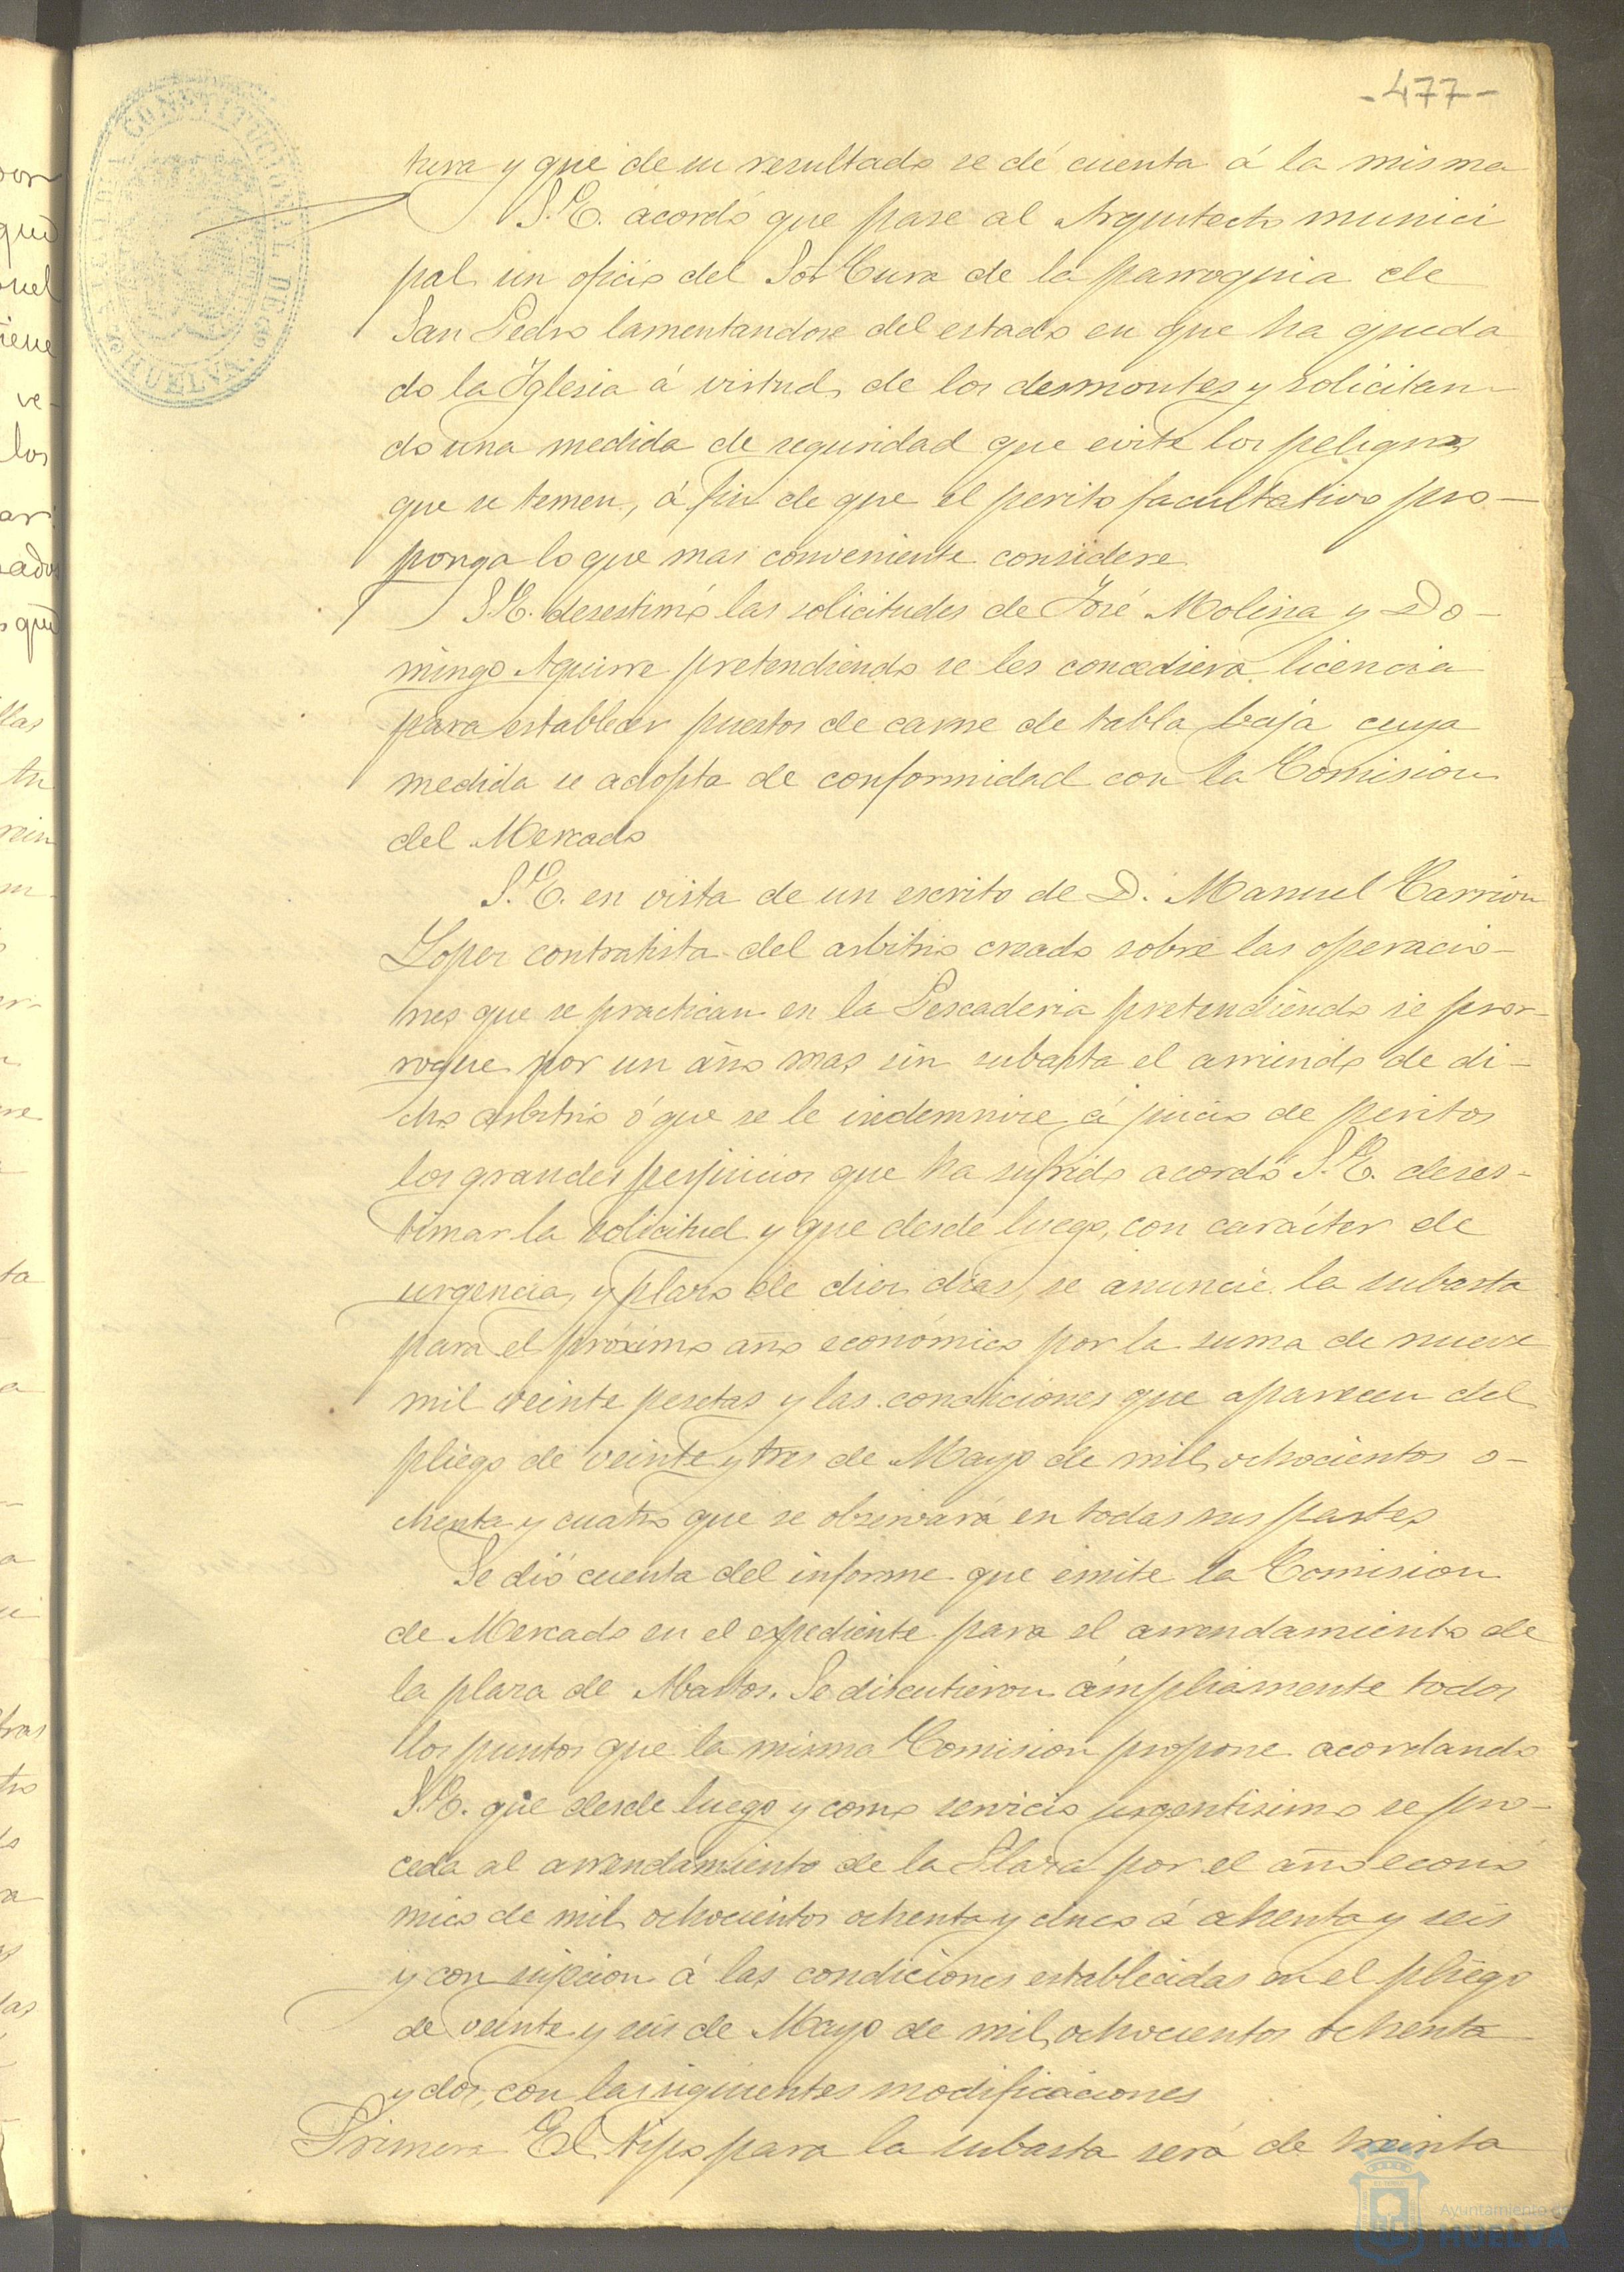 -477-
tura y que de su resultado se dé cuenta á la misma
S.E. acordó que pase al Arquitecto munici
pal un oficio del Sor Cura de la parroquia de
San Pedro lamentandose del estado en que ha queda
do la Iglesia á virtud de los desmontes y solicitan
do una medida de seguridad que evite los peligros
que se temen, á fin de que el perito facultativo pro-
ponga lo que mas conveniente considere
S.E. desestimó las solicitudes de José Molina y Do-
mingo Aguirre pretendiendo se les concediera licencia
para establecer puestos de carne de tabla baja cuya
medida se adopta de conformidad con la Comision
del Mercado
S.E. en vista de un escrito de D. Manuel Carrion
Lopez contratista del arbitrio creado sobre las operacio-
nes que se practican en la Pescaderia pretendiendo se pror-
rogue por un año mas sin subasta el arriendo de di-
cho arbitrio ó que se le indemnize á juicio de peritos
los grandes perjuicios que ha sufrido acordó S.E. deses-
timar la solicitud y que desde luego, con carácter de
urgencia, y plazo de diez dias, se anuncie la subasta
para el próximo año económico por la suma de nueve
mil veinte pesetas y las condiciones que aparecen del
pliego de veinte y tres de Mayo de mil ochocientos o-
chenta y cuatro que se observará en todas sus partes
Se dió cuenta del informe que emite la Comision
de Mercado en el expediente para el arrendamiento de
la plaza de Abastos. Se discutieron ámpliamente todos
los puntos que la misma Comision propone acordando
S.E. que desde luego y como servicio urgentisimo se pro-
ceda al arrendamiento de la Plaza por el año econó
mico de mil ochocientos ochenta y cinco á ochenta y seis
y con sujecion á las condiciones establecidas en el pliego
de veinte y seis de Mayo de mil ochocientos ochenta
y dos, con las siguientes modificaciones
Primera El tipo para la subasta será de treinta
CONSTITUCIONAL DE
HUELVA
Ayuntamiento de
HUELVA